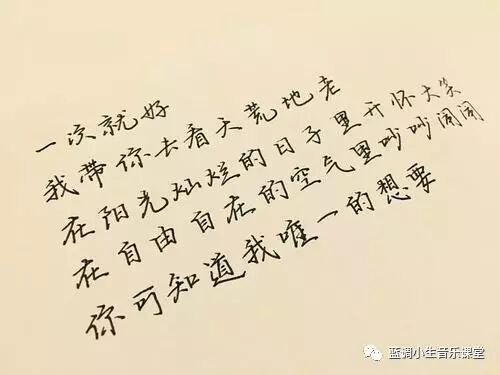 一次就好
我带你去看天荒地老
在阳光灿烂的日子里开怀大笑
在自由自在的空气里吵吵闹闹
你可知道我唯一的想要
蓝调小生音乐课堂